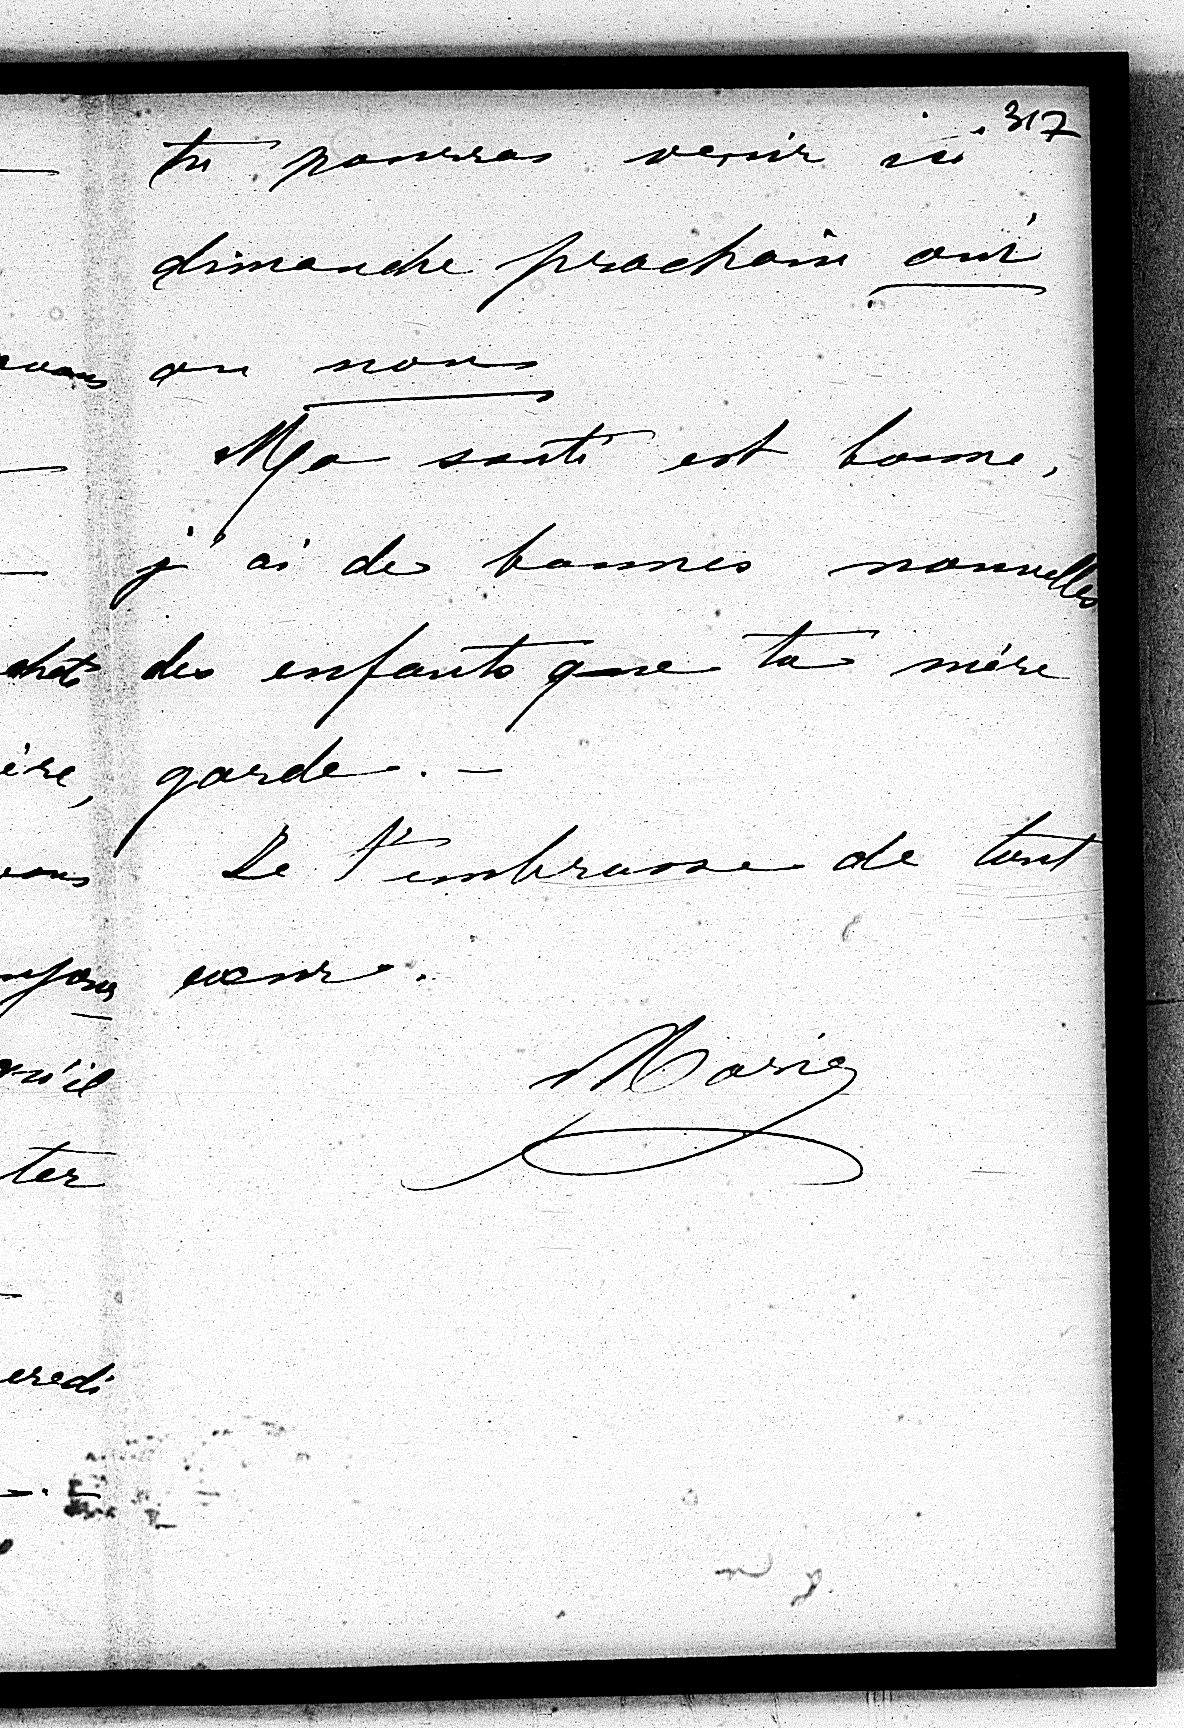 317
tu pourras venir ici
dimanche prochain oui
ou non
Ma santé est bonne,
j'ai de bonnes nouvelles
des enfants que ta mère
garde. —
Je t'embrasse de tout
cœur.
Marie
ère,
qu'il
ter
eredi